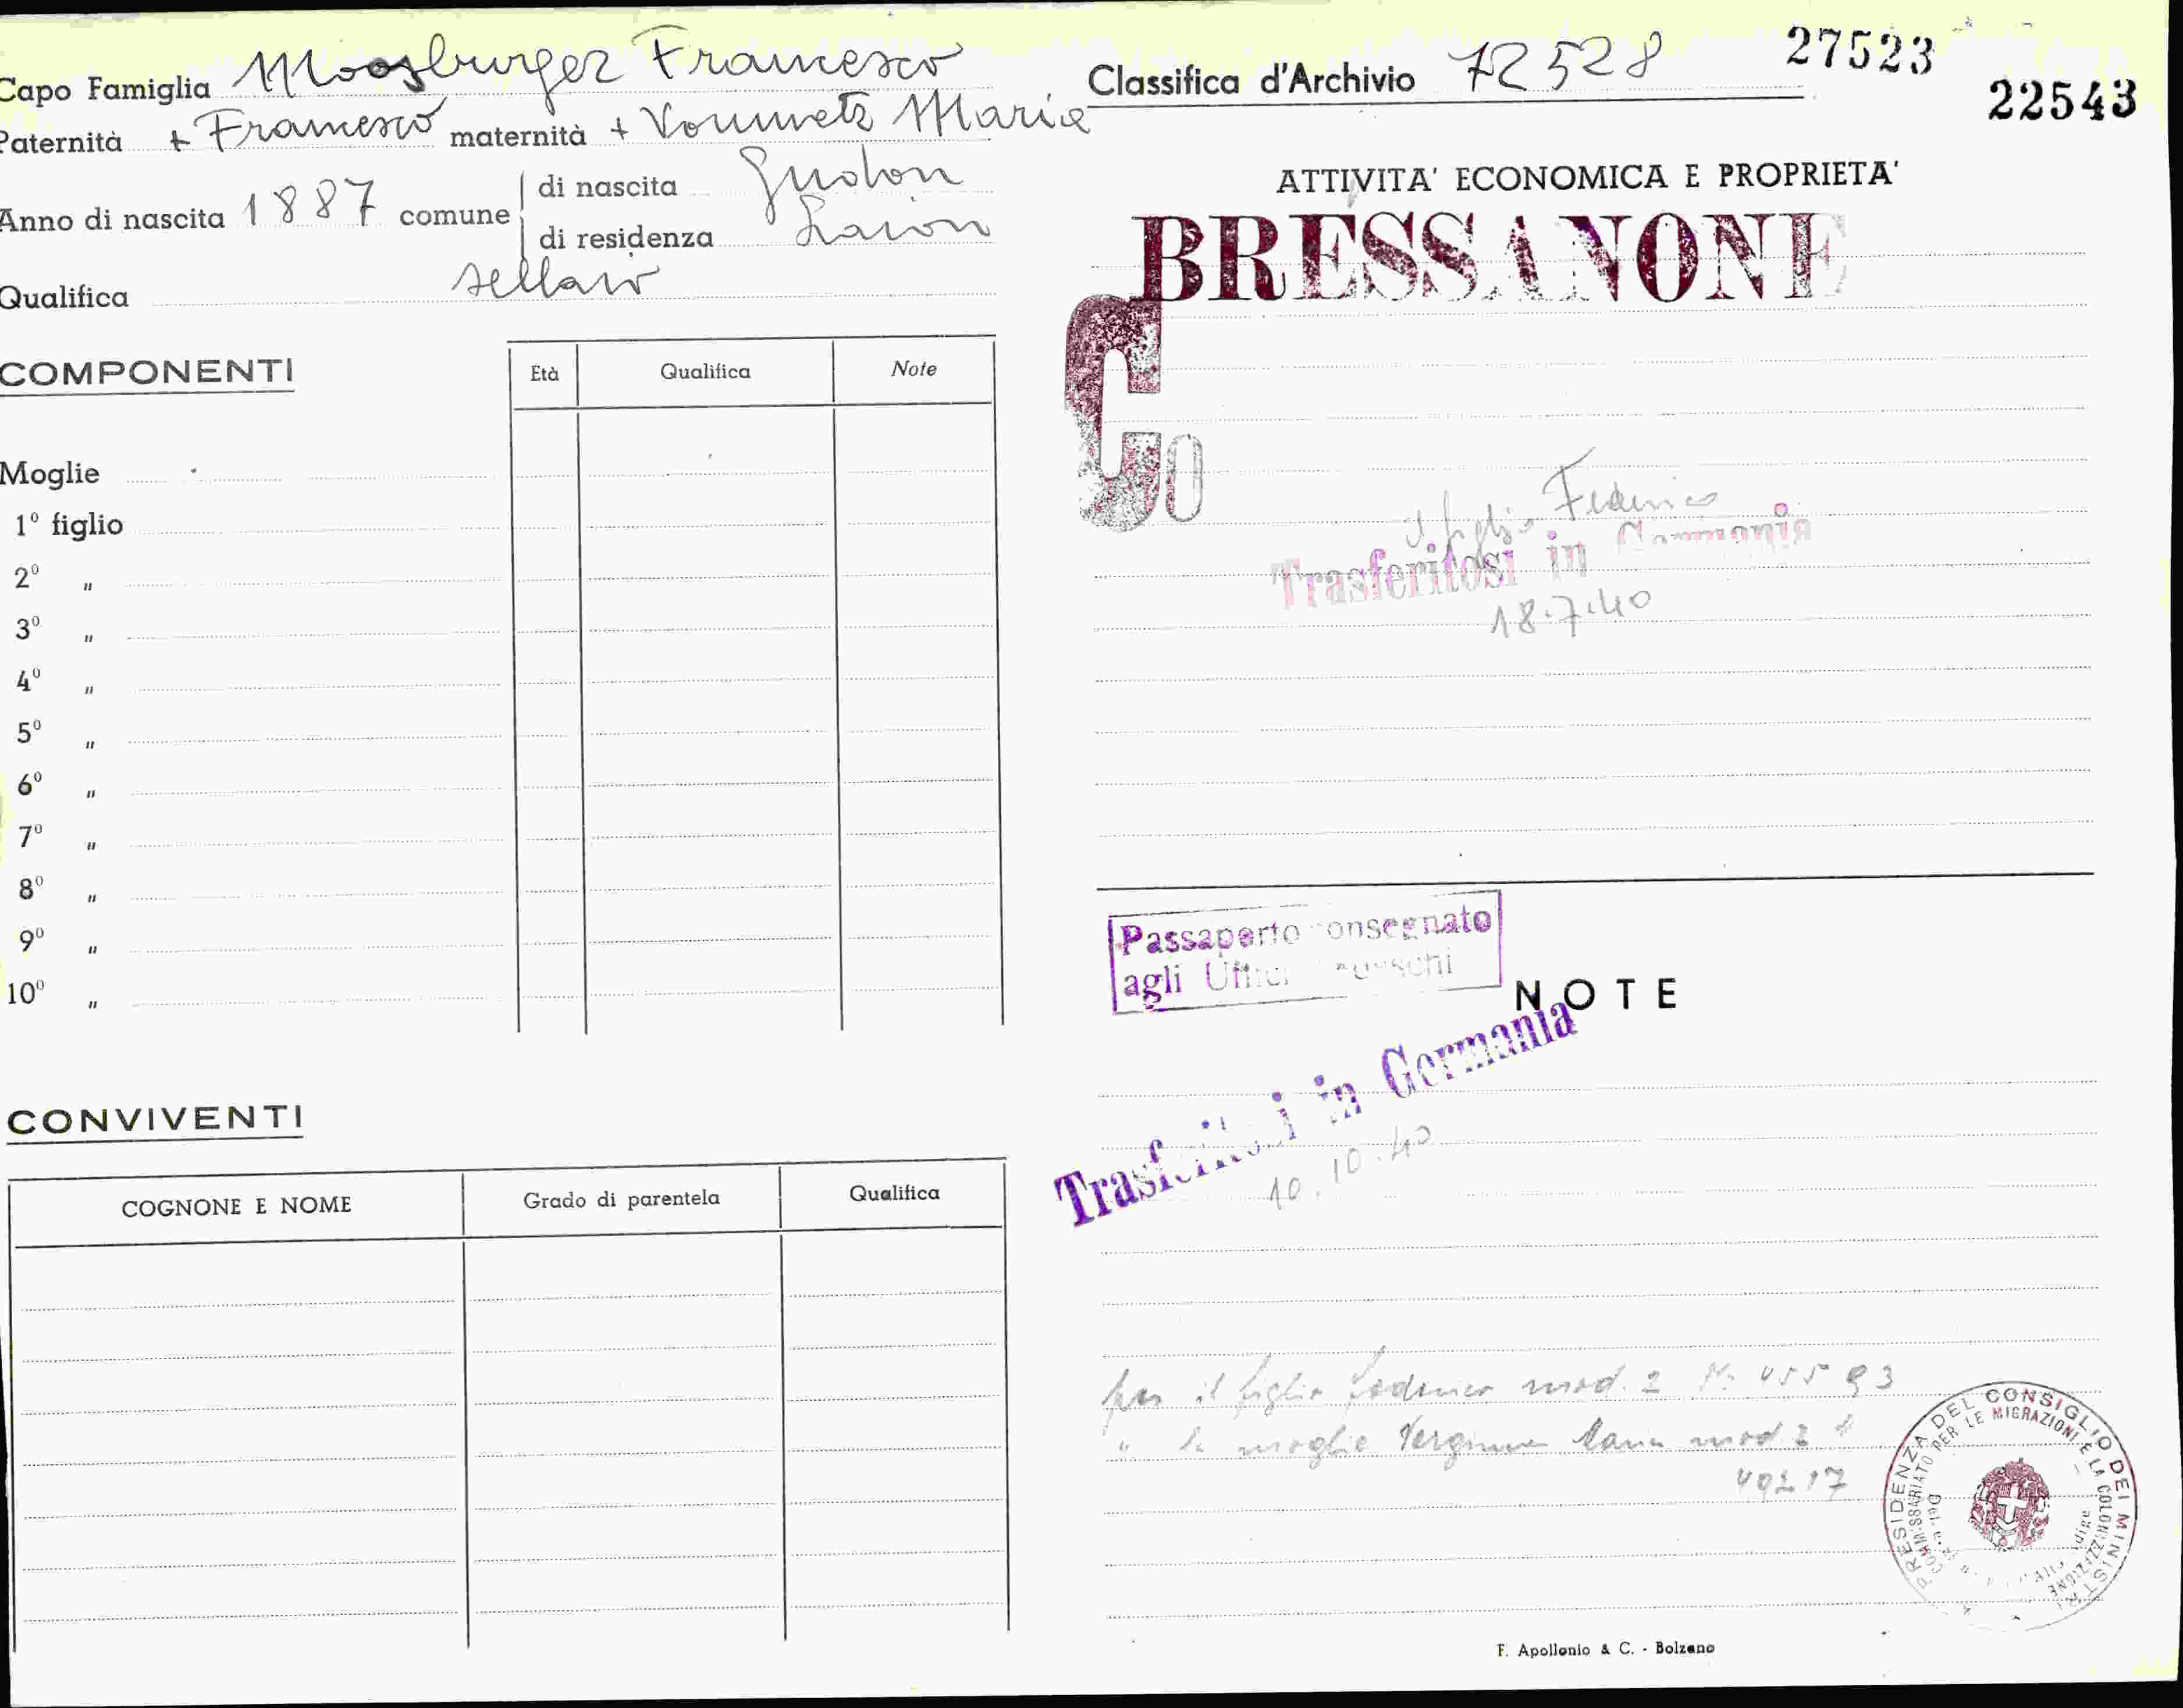 Capo Famiglia Moosburger Francesco
Paternità + Francesco maternità + Vonmetz Maria
Anno di nascita 1887 comune di nascita Gudon
di residenza Laion
Qualifica sellaio
COMPONENTI
Età Qualifica Note
Moglie
1º figlio
2º "
3º "
4º "
5º "
6º "
7º "
8º "
9º "
10º "
CONVIVENTI
COGNONE E NOME Grado di parentela Qualifica
Classifica d'Archivio 72528
27523
22543
ATTIVITA' ECONOMICA E PROPRIETA'
BRESSANONE
il figlio Federico
Trasferitosi in Germania
18.7.40
Passaporto consegnato
agli Uffici Tedeschi
NOTE
Trasferitosi in Germania
10.10.40
per il figlio Federico mod. 2 N. 45593
" la moglie Maria mod. 2
49217
PRESIDENZA DEL CONSIGLIO DEI MINISTRI
COMMISSARIATO PER LE MIGRAZIONI E LA COLONIZZAZIONE
F. Apollonio & C. - Bolzano